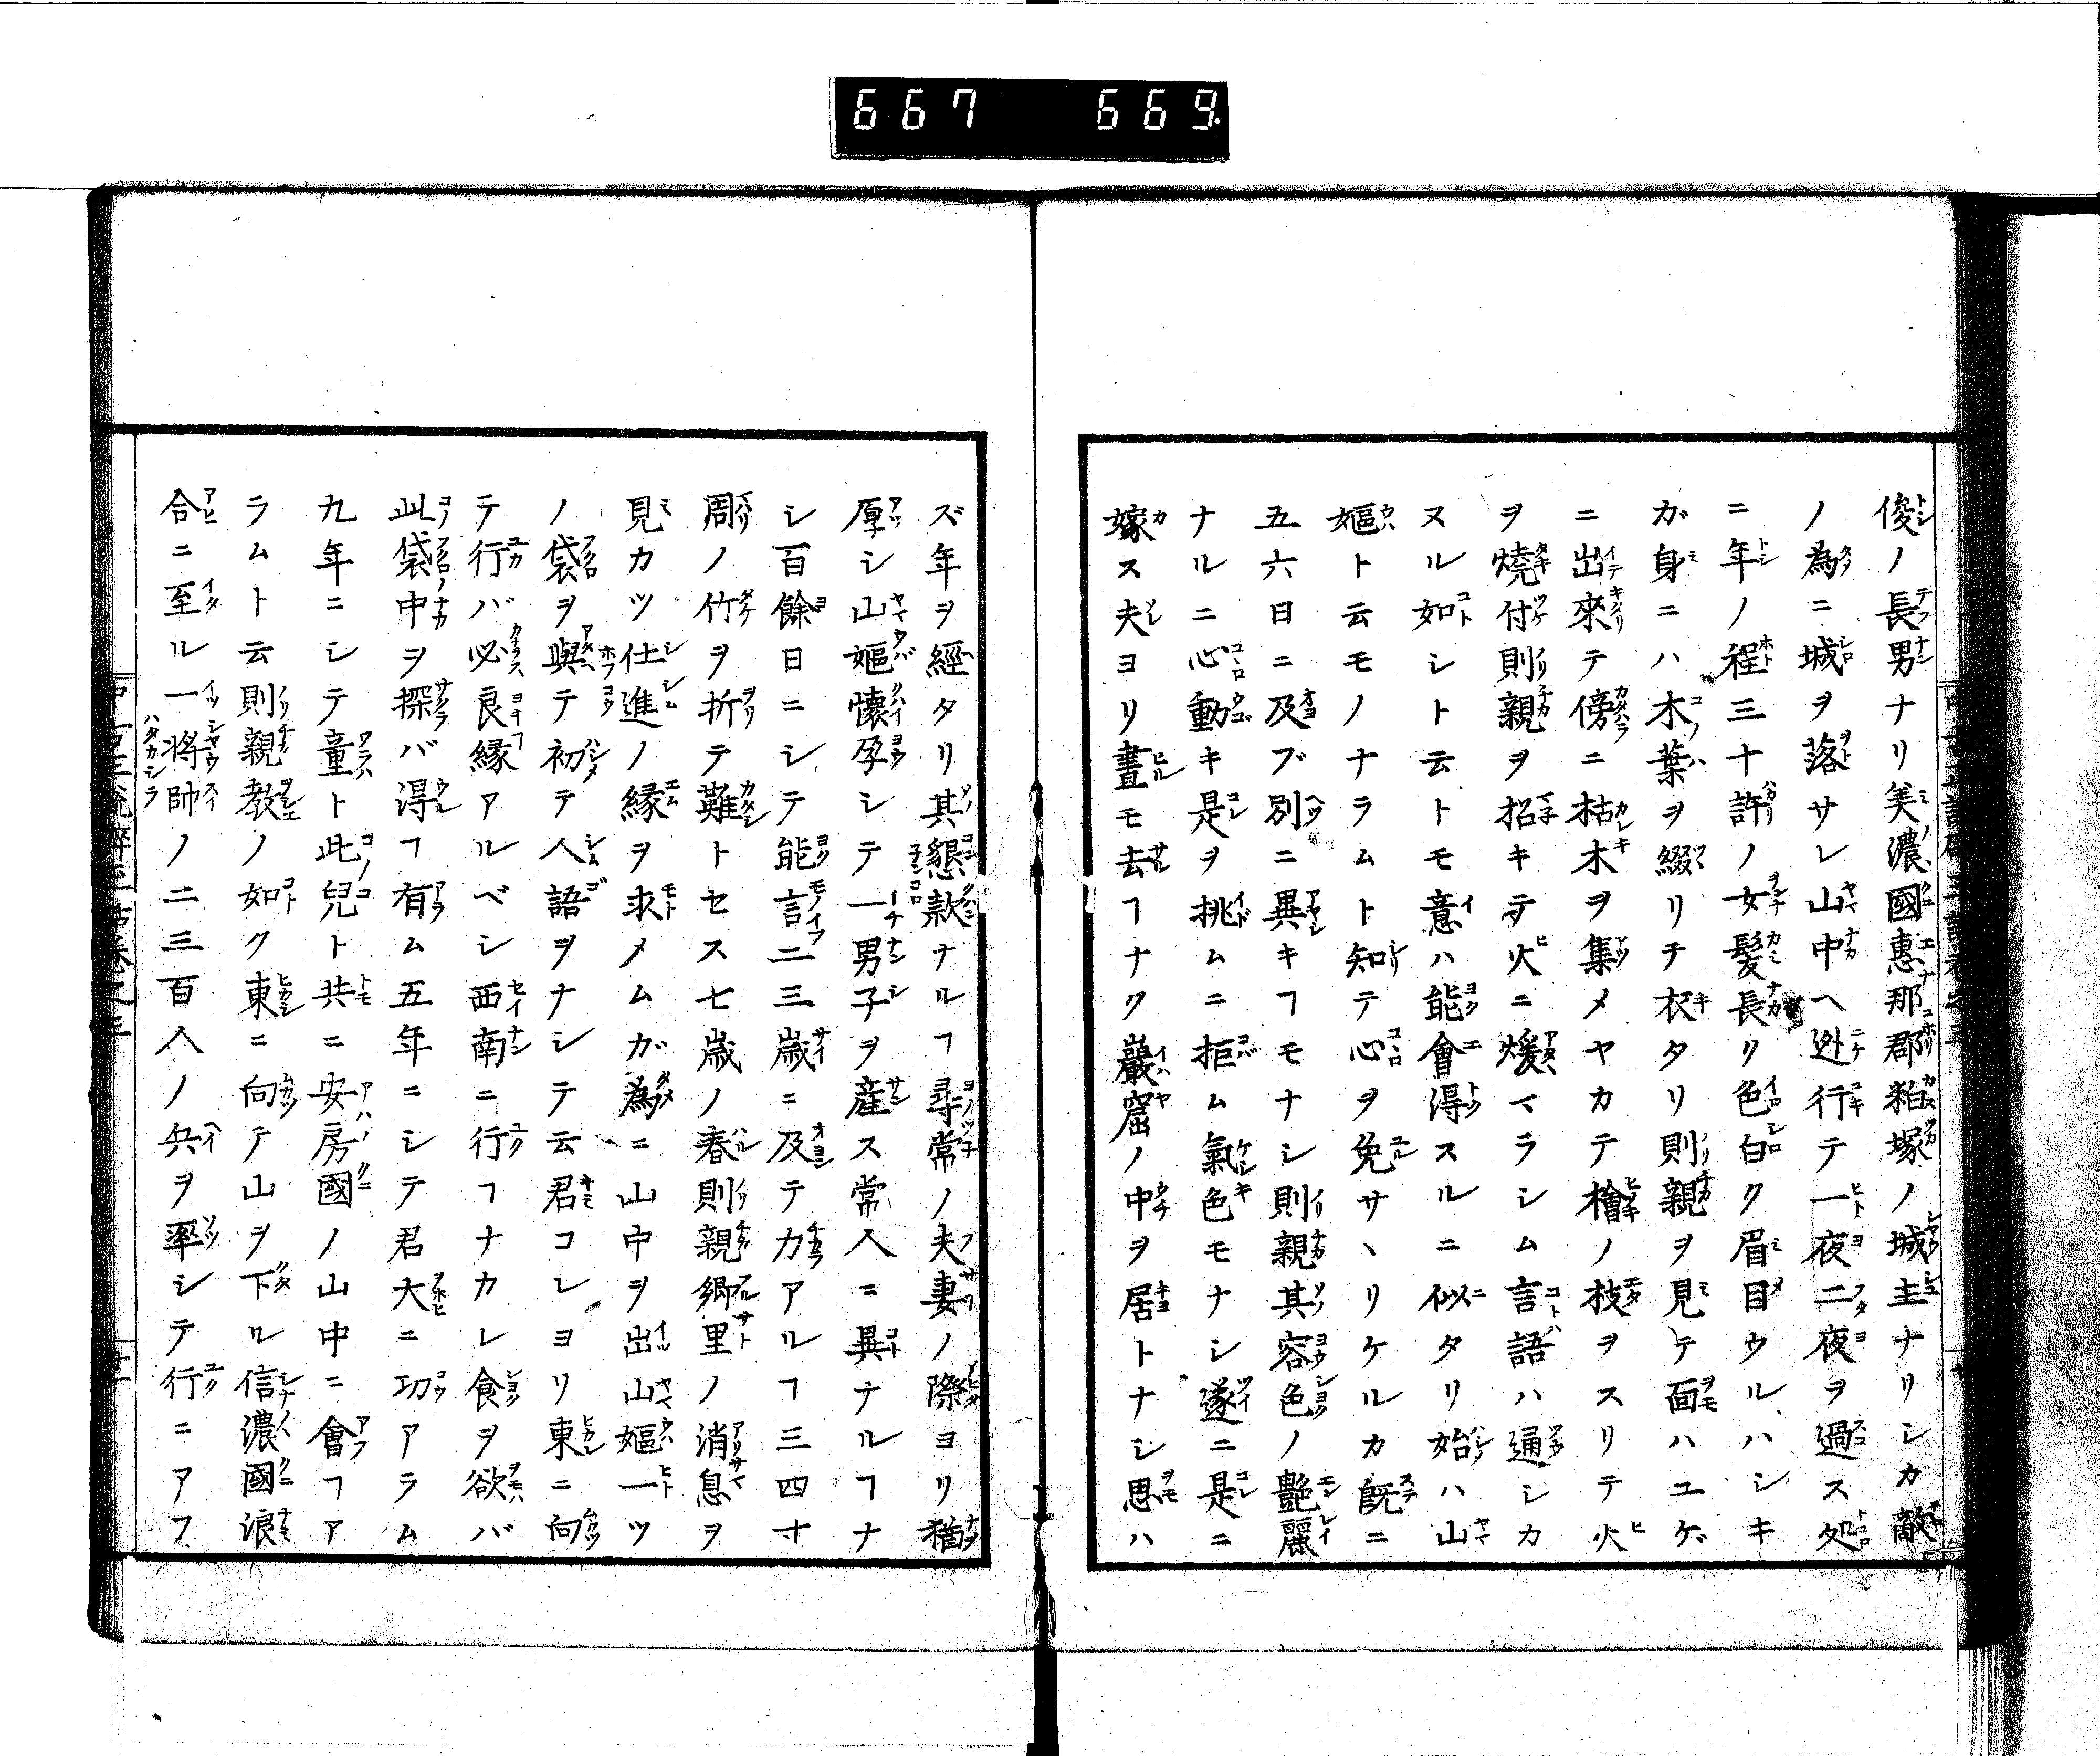 667 669
俊ノ長男ナリ美濃國惠那郡粕塚ノ城主ナリシカ敵
ノ為ニ城ヲ落サレ山中ヘ迯行テ一夜二夜ヲ過ス処
ニ年ノ程三十許ノ女髪長リ色白ク眉目ウルハシキ
ガ身ニハ木葉ヲ綴リチ衣タリ則親ヲ見テ面ハユゲ
ニ出來テ傍ニ枯木ヲ集メヤカテ檜ノ枝ヲスリテ火
ヲ燒付則親ヲ招キテ火ニ煖マラシム言語ハ通シカ
ヌル如シト云トモ意ハ能會得スルニ似タリ始ハ山
嫗ト云モノナラムト知テ心ヲ免サヽリケルカ既ニ
五六日ニ及ブ別ニ異キヿモナシ則親其容色ノ艷麗
ナルニ心動キ是ヲ挑ムニ拒ム氣色モナシ遂ニ是ニ
嫁ス夫ヨリ晝モ去ヿナク巖窟ノ中ヲ居トナシ思ハ
ズ年ヲ經タリ其懇款ナルヿ尋常ノ夫妻ノ際ヨリ猶
厚シ山嫗懷孕シテ一男子ヲ産ス常人ニ異ナルヿナ
シ百餘日ニシテ能言二三歳ニ及テ力アルヿ三四寸
周ノ竹ヲ折テ難トセス七歳ノ春則親郷里ノ消息ヲ
見カツ仕進ノ縁ヲ求メムガ為ニ山中ヲ出山嫗一ツ
ノ袋ヲ與テ初テ人語ヲナシテ云君コレヨリ東ニ向
テ行バ必良縁アルベシ西南ニ行ヿナカレ食ヲ欲バ
此袋中ヲ探バ得ヿ有ム五年ニシテ君大ニ功アラム
九年ニシテ童ト此兒ト共ニ安房國ノ山中ニ會ヿア
ラムト云則親教ノ如ク東ニ向テ山ヲ下ル信濃國浪
合ニ至ル一將帥ノ二三百人ノ兵ヲ率シテ行ニアフ